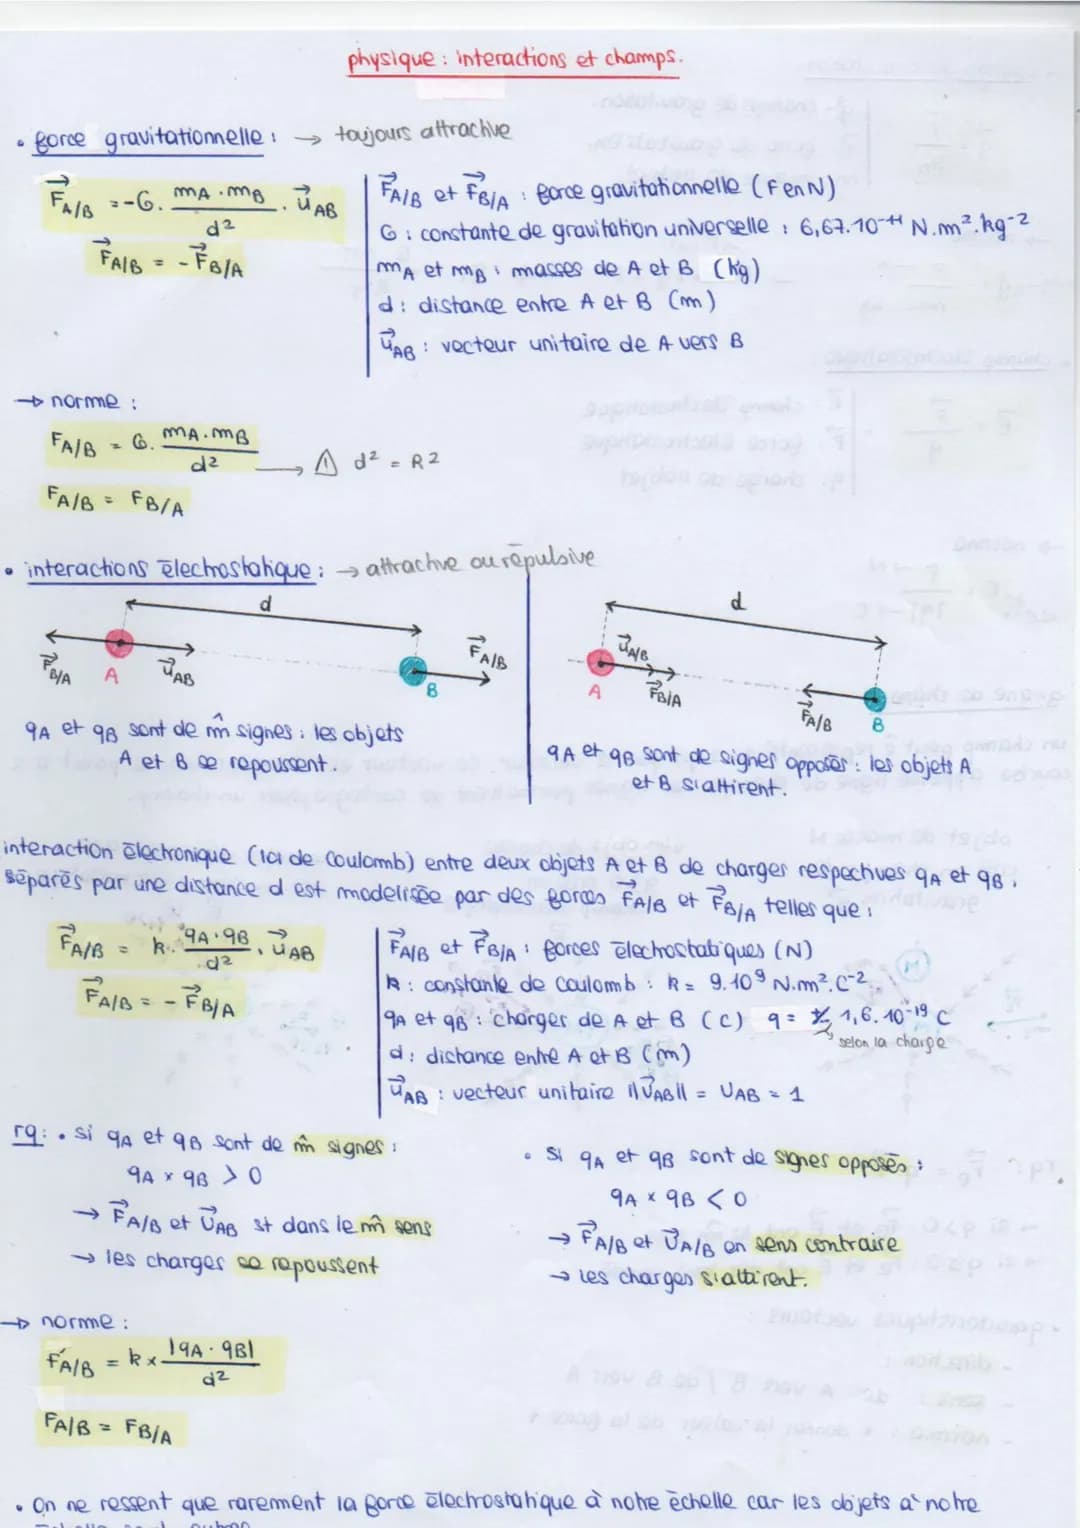 physique : interactions et champs.
• force gravitationnelle : → toujours attractive
F⃗A/B = -G. mA . mB / d² . u⃗AB
F⃗A/B = - F⃗B/A
F⃗A/B et F⃗B/A : force gravitationnelle (F en N)
G : constante de gravitation universelle : 6,67.10⁻¹¹ N.m².kg⁻²
mA et mB : masses de A et B (kg)
d : distance entre A et B (m)
u⃗AB : vecteur unitaire de A vers B
→ norme :
FA/B = G. mA.mB / d² → ⚠ d² = R²
FA/B = FB/A
• interactions électrostatique : → attractive ou répulsive
d
F⃗B/A A u⃗AB B F⃗A/B
qA et qB sont de m̂ signes : les objets
A et B se repoussent.
d
A u⃗A/B F⃗B/A F⃗A/B B
qA et qB sont de signes opposés : les objets A
et B s'attirent.
interaction électronique (loi de Coulomb) entre deux objets A et B de charges respectives qA et qB,
séparés par une distance d est modelisée par des forces F⃗A/B et F⃗B/A telles que :
F⃗A/B = k. qA.qB / d² . u⃗AB
F⃗A/B = - F⃗B/A
F⃗A/B et F⃗B/A : forces électrostatiques (N)
k : constante de Coulomb : k = 9.10⁹ N.m².C⁻²
qA et qB : charges de A et B (C) q = +/- 1,6.10⁻¹⁹ C
selon la charge
d : distance entre A et B (m)
u⃗AB : vecteur unitaire ||U⃗AB|| = UAB = 1
rq : • si qA et qB sont de m̂ signes :
qA × qB > 0
→ F⃗A/B et U⃗AB st dans le m̂ sens
→ les charges se repoussent
• si qA et qB sont de signes opposés :
qA × qB < 0
→ F⃗A/B et U⃗A/B en sens contraire
→ les charges s'attirent.
→ norme :
FA/B = k × |qA . qB| / d²
FA/B = FB/A
• On ne ressent que rarement la force électrostatique à notre échelle car les objets à notre